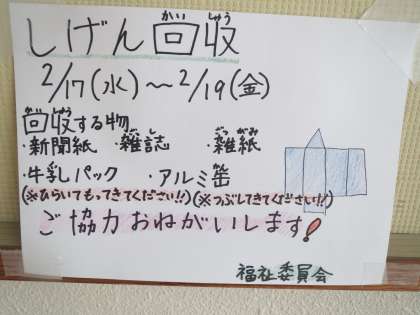 しげん回収
2/17(水)〜2/19(金)
回収する物
・新聞紙 ・雑誌 ・雑紙
・牛乳パック ・アルミ缶
(※ひらいてもってきてください!!) (※つぶしてきてください!!)
ご協力おねがいします!
福祉委員会